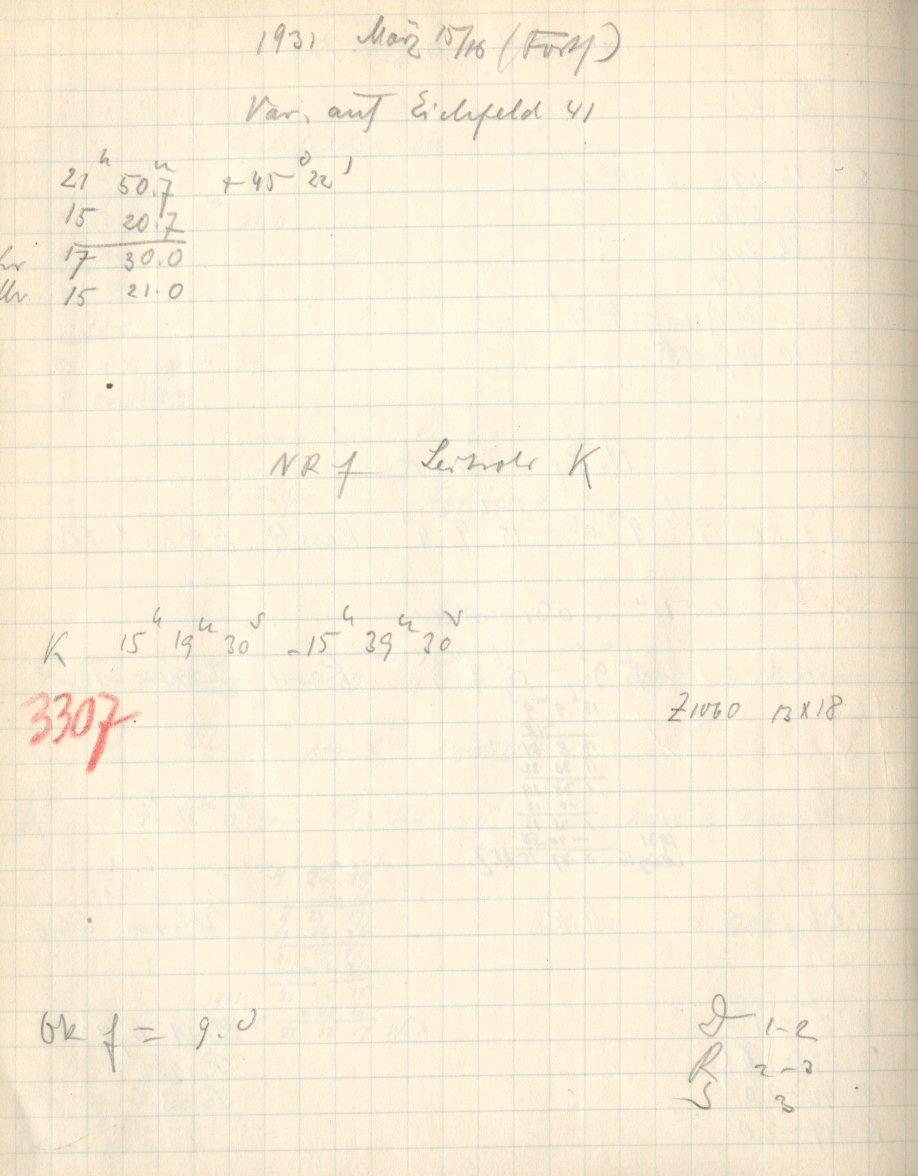 1931 März 15/16 (Forts)
Var. auf Eichfeld 41
21ʰ 50.7ᵐ +45° 22'
15 20.7
17 30.0
15 21.0
NR f Leitrohr K
K 15ʰ 19ᵐ 30ˢ - 15ʰ 39ᵐ 30ˢ
3307
Z1060 13x18
Ok f = 9.0
D 1-2
R 2-3
S 3